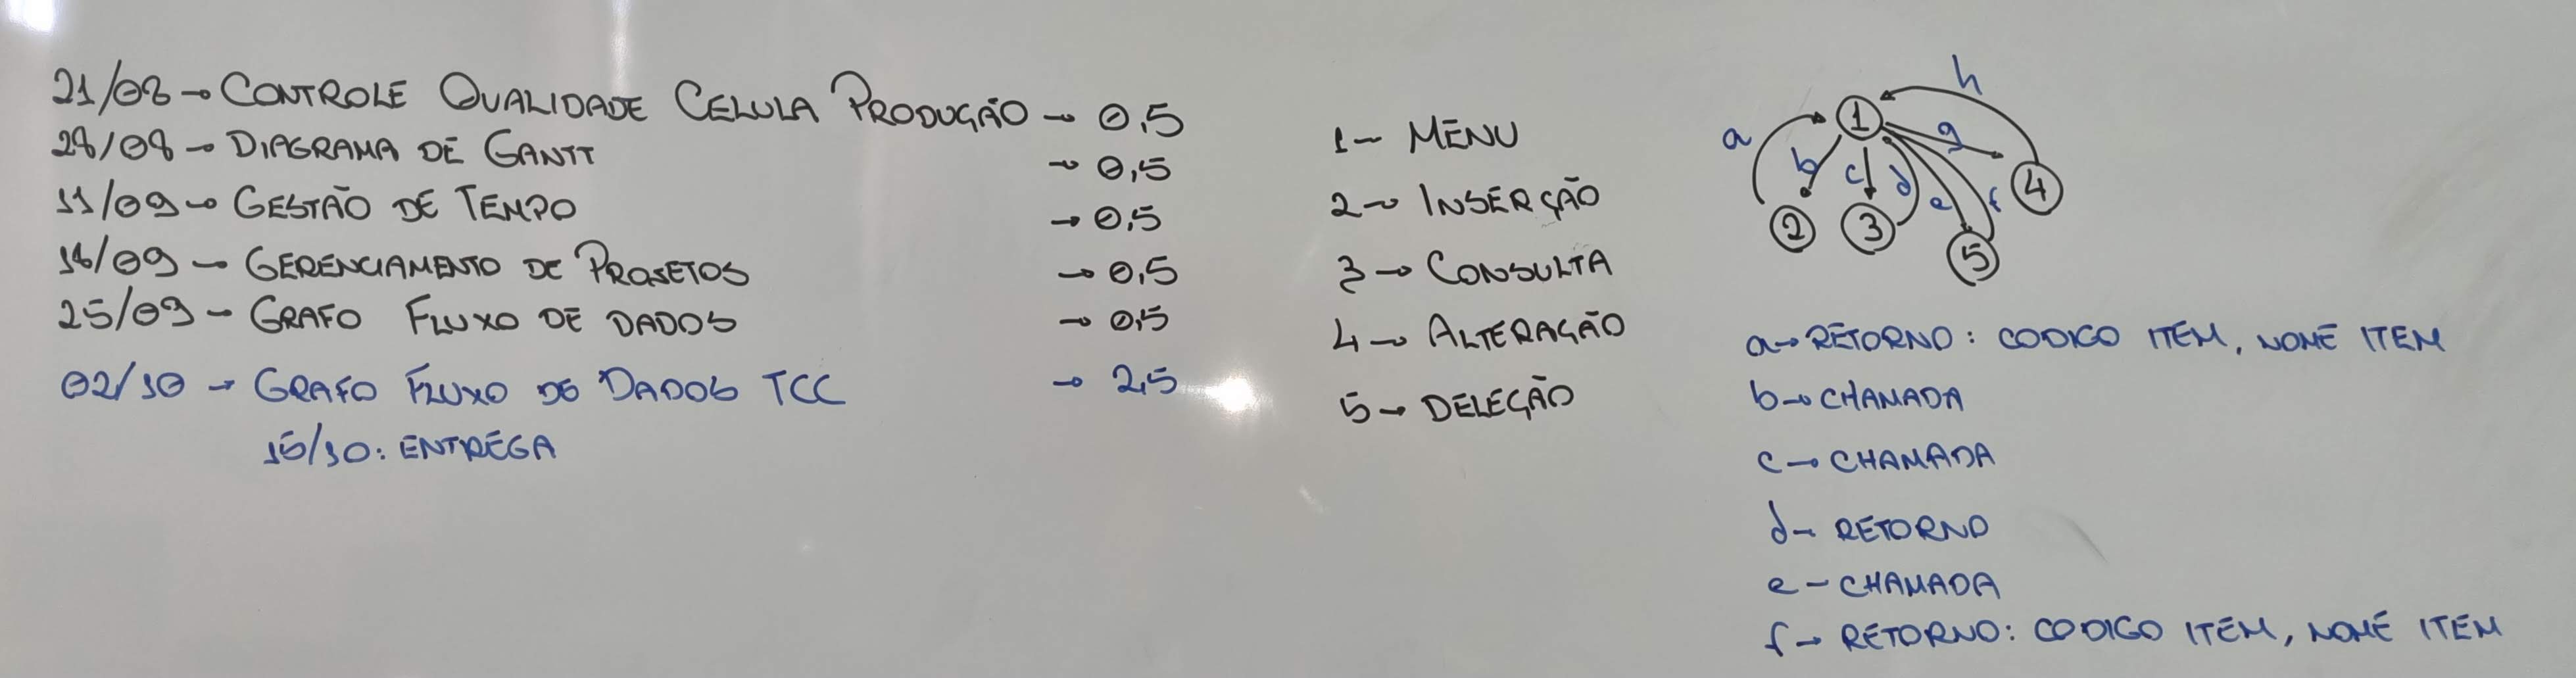 21/08 → CONTROLE QUALIDADE CELULA PRODUÇÃO → 0,5
28/08 → DIAGRAMA DE GANTT → 0,5
11/09 → GESTÃO DE TEMPO → 0,5
18/09 → GERENCIAMENTO DE PROJETOS → 0,5
25/09 → GRAFO FLUXO DE DADOS → 0,5
02/10 → GRAFO FLUXO DE DADOS TCC → 2,5
15/10: ENTREGA
1 → MENU
2 → INSERÇÃO
3 → CONSULTA
4 → ALTERAÇÃO
5 → DELEÇÃO
h
a 1 g
b c d e f 4
2 3
5
a → RETORNO: CODIGO ITEM, NOME ITEM
b → CHAMADA
c → CHAMADA
d → RETORNO
e → CHAMADA
f → RETORNO: CODIGO ITEM, NOME ITEM